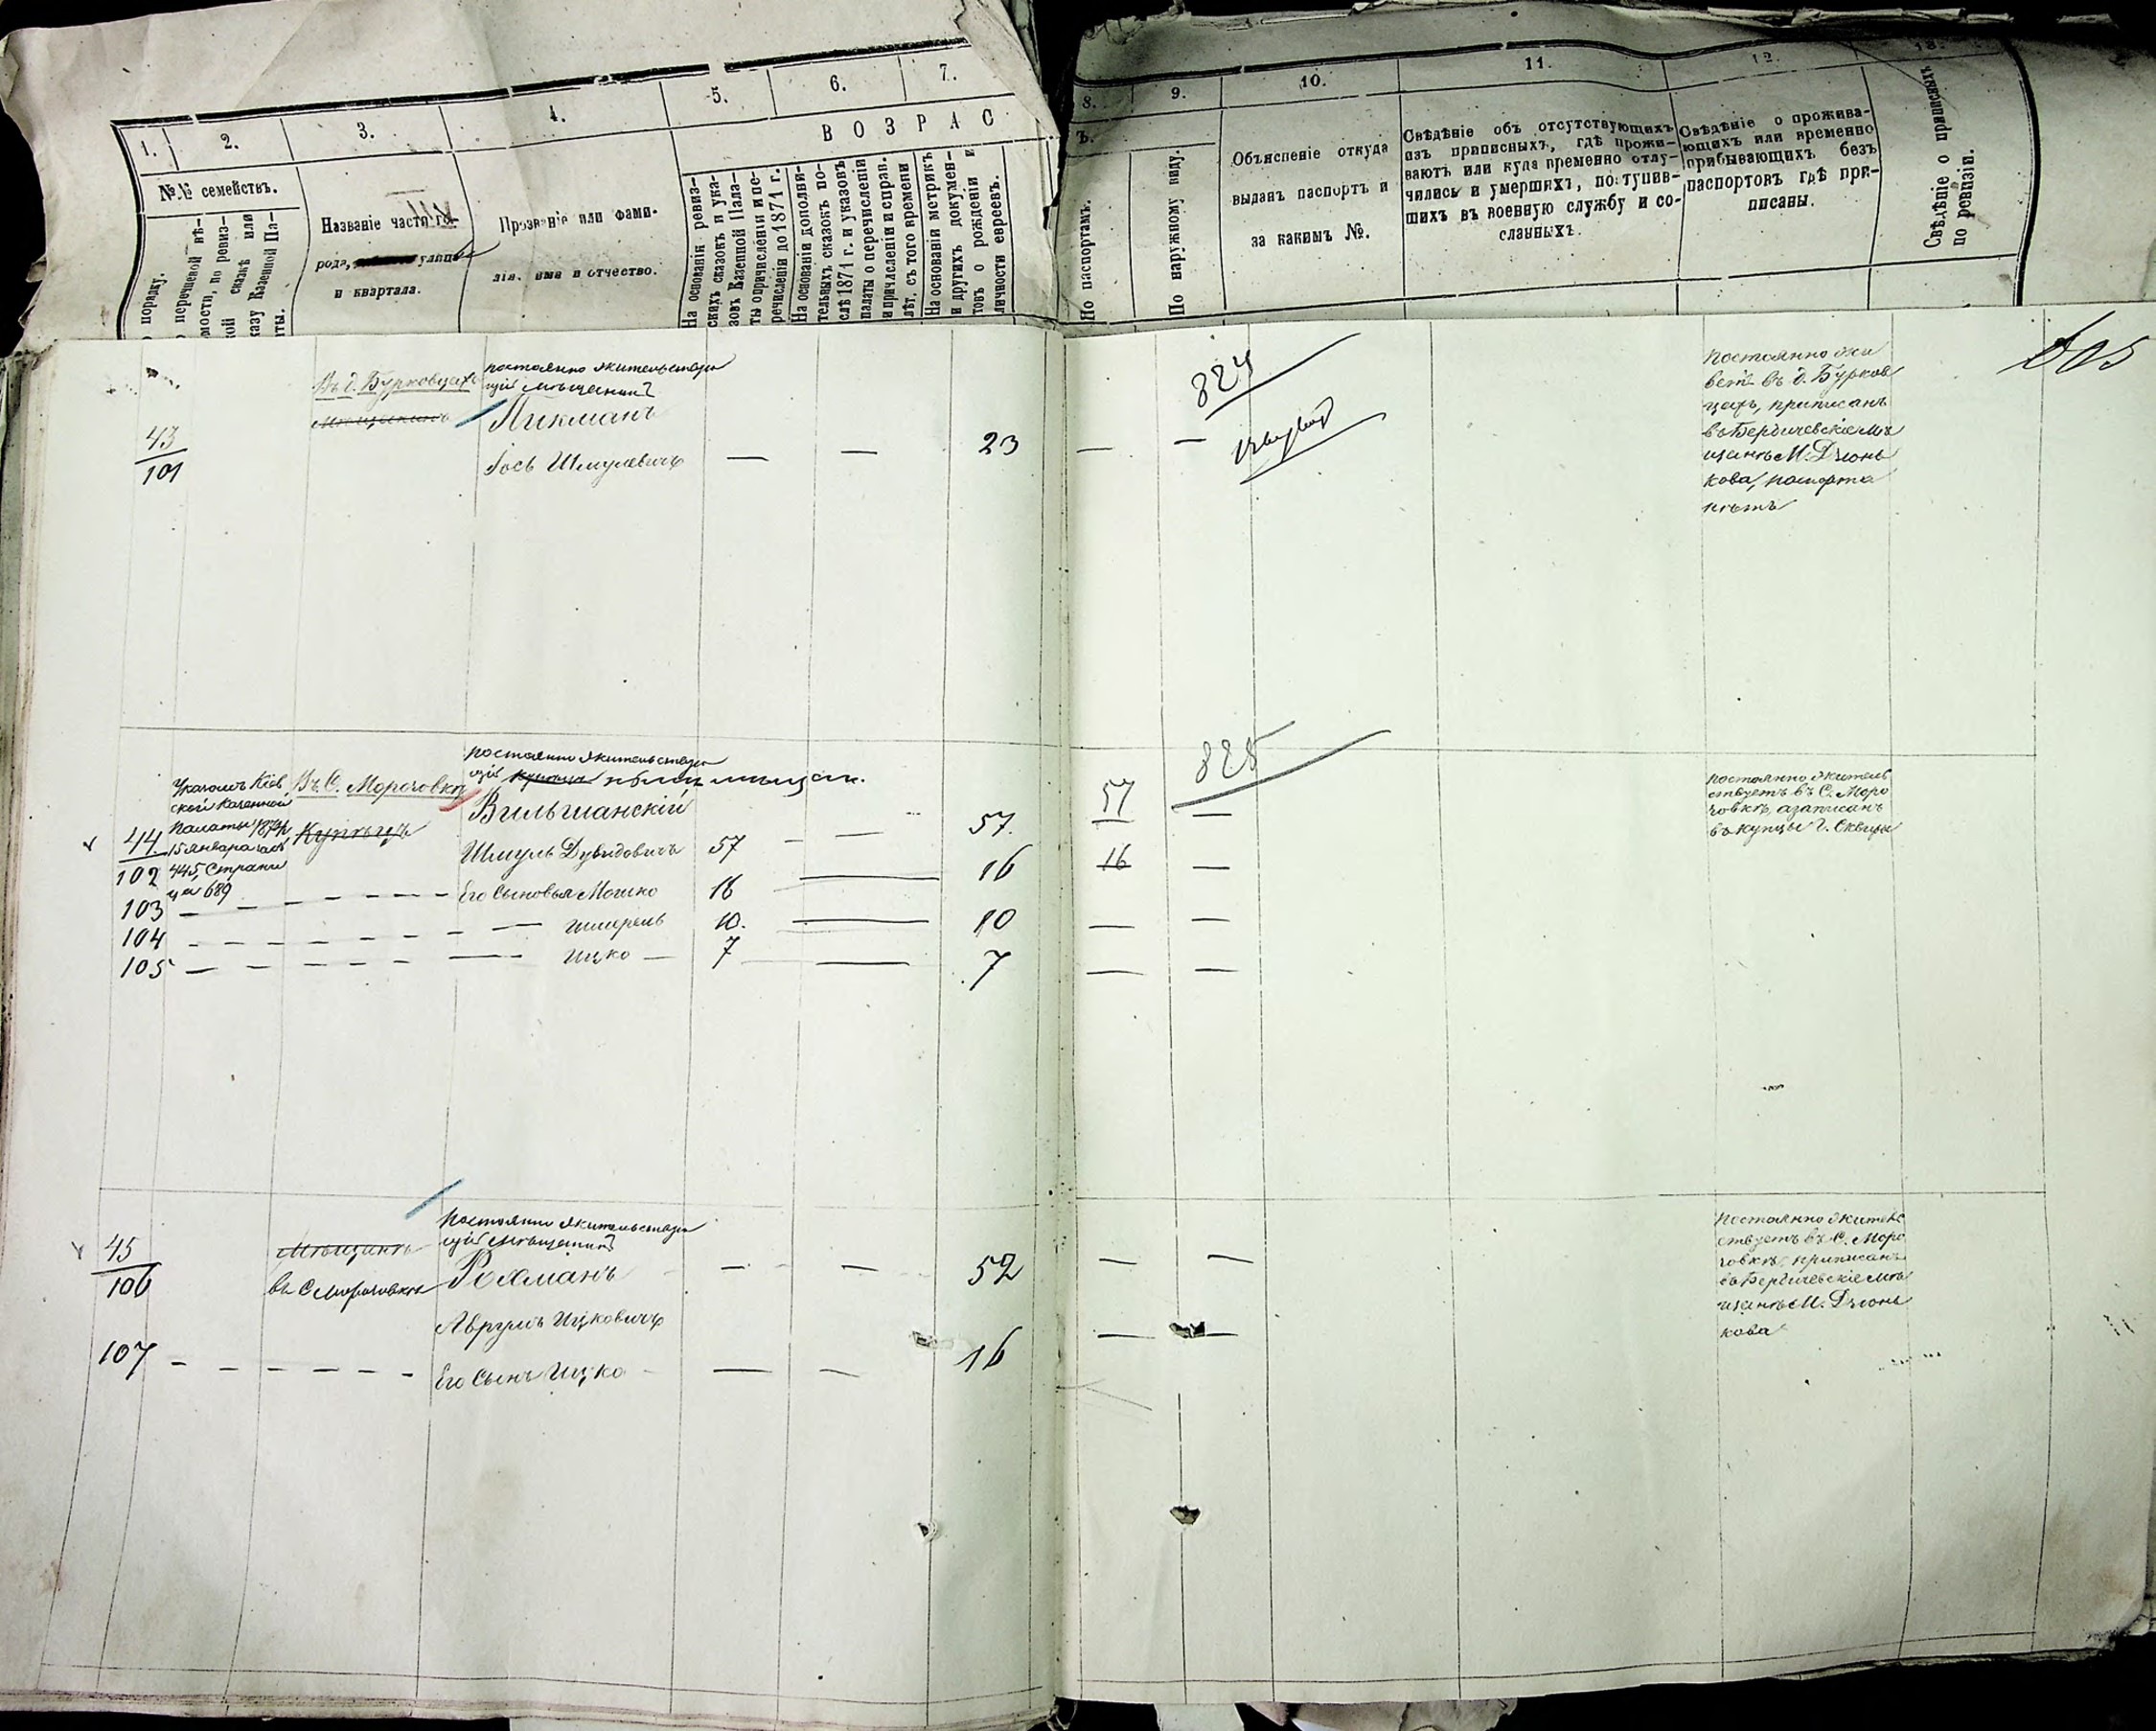 1. 2. 3. 4. 5. 6. 7.
В О З Р А С
№№ семействъ.
порядку.
перечневой вѣ-
мости, по ревиз-
кой сказкѣ или
казу Казенной Па-
ты.
Названіе части го-
рода, улицы
и квартала.
Прозваніе или фами-
лія, имя и отчество.
На основаніи ревиз-
скихъ сказокъ и ука-
зовъ Казенной Пала-
ты о причисленіи и пе-
речисленіи до 1871 г.
На основаніи дополни-
тельныхъ сказокъ по-
слѣ 1871 г. и указовъ
палаты о перечисленіи
и причисленіи и справ.
лѣт. съ того времени
На основаніи метрикъ
и другихъ докумен-
товъ о рожденіи и
личности евреевъ.
8. 9. 10. 11. 12. 13.
Ъ.
По паспортамъ.
По наружному виду.
Объясненіе откуда
выданъ паспортъ и
за какимъ №.
Свѣдѣніе объ отсутствующихъ
изъ приписныхъ, гдѣ прожи-
ваютъ или куда временно отлу-
чились и умершихъ, поступив-
шихъ въ военную службу и со-
сланныхъ.
Свѣдѣніе о прожива-
ющихъ или временно
прибывающихъ безъ
паспортовъ гдѣ при-
писаны.
Свѣдѣніе о приписныхъ
по ревизіи.
Въ д. Бурковцахъ
постоянно жительствую
щій мѣщанинъ
Ликманъ
43
101
Іось Шмулевичъ — — 23 — —
824
постоянно жи
ветъ въ д. Бурков
цахъ, приписанъ
въ Бердичевскіе мѣ
щане М. Дзюнь
кова, паспорта
нѣтъ
505
Указомъ Кіев
ской Казенной
Палаты
15 Января за №
445, Страни
ца 689
Въ С. Морозовкѣ
Купецъ
постоянно жительствую
щій Купецъ мѣщан.
Вильшанскій
44
102
Шмуль Дувидовичъ 57 — — 57. 57 —
825
103 Его Сыновья Мошко 16 — 16 16 —
104 — Шмерель 10. — 10 — —
105 — Ицко — 7 — 7 — —
постоянно житель
ствуетъ въ С. Моро
зовкѣ, а записанъ
въ купцы Г. Сквиры
45
106
Мѣщанинъ
въ С Морозовкѣ
постоянно жительствую
щій Мѣщанинъ
Рохманъ — — 52 — —
Аврумъ Ицковичъ
107 Его Сынъ Ицко — — 16 — —
постоянно житель
ствуетъ въ С. Моро
зовкѣ, приписанъ
въ Бердичевскіе мѣ
щане М. Дзюнь
кова